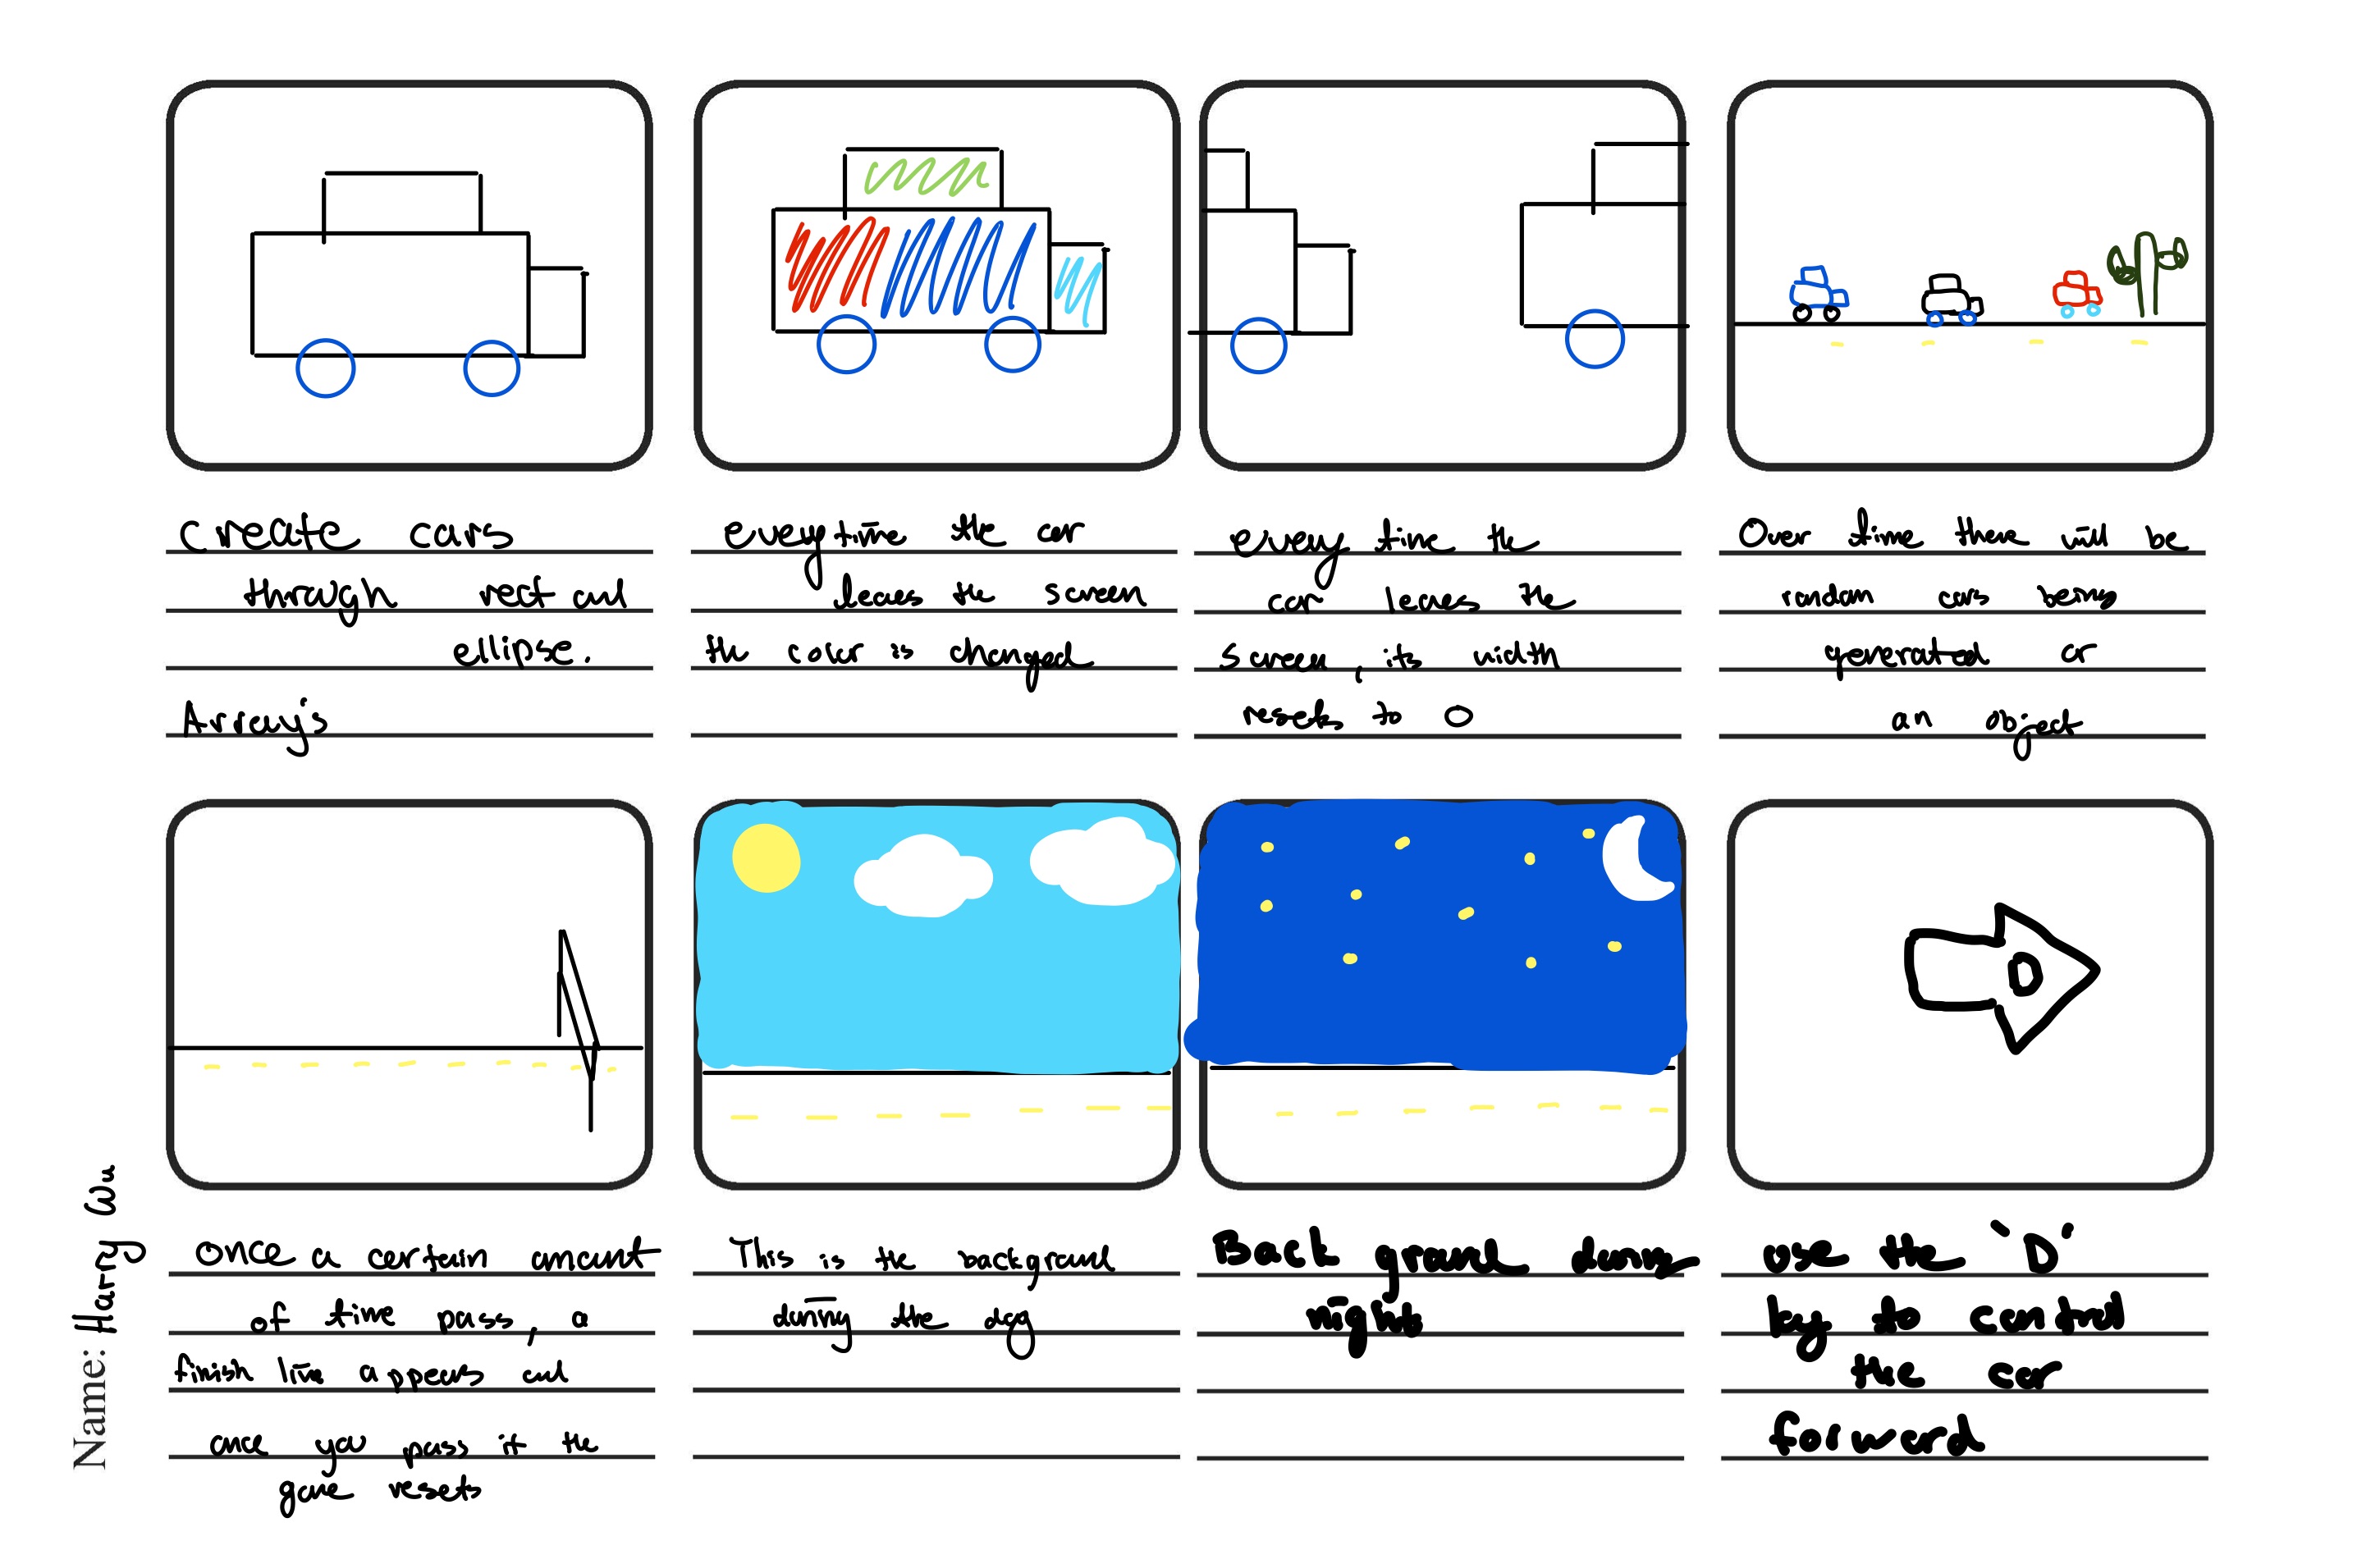 Create cars
through rect and
ellipse.
Array's
everytime the car
leaves the screen
the color is changed
every time the
car leaves the
screen, its width
resets to 0
Over time there will be
random cars being
generated or
an object
D
Name: Harry Wu
Once a certain amount
of time pass, a
finish line appears and
once you pass it the
game resets
This is the background
during the day
Back ground during
night
use the 'D'
key to control
the car
forward